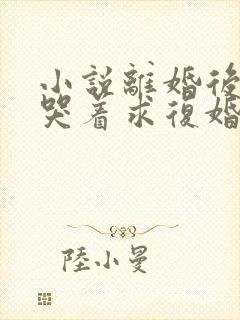 小説離婚後
哭着求復婚
陸小曼